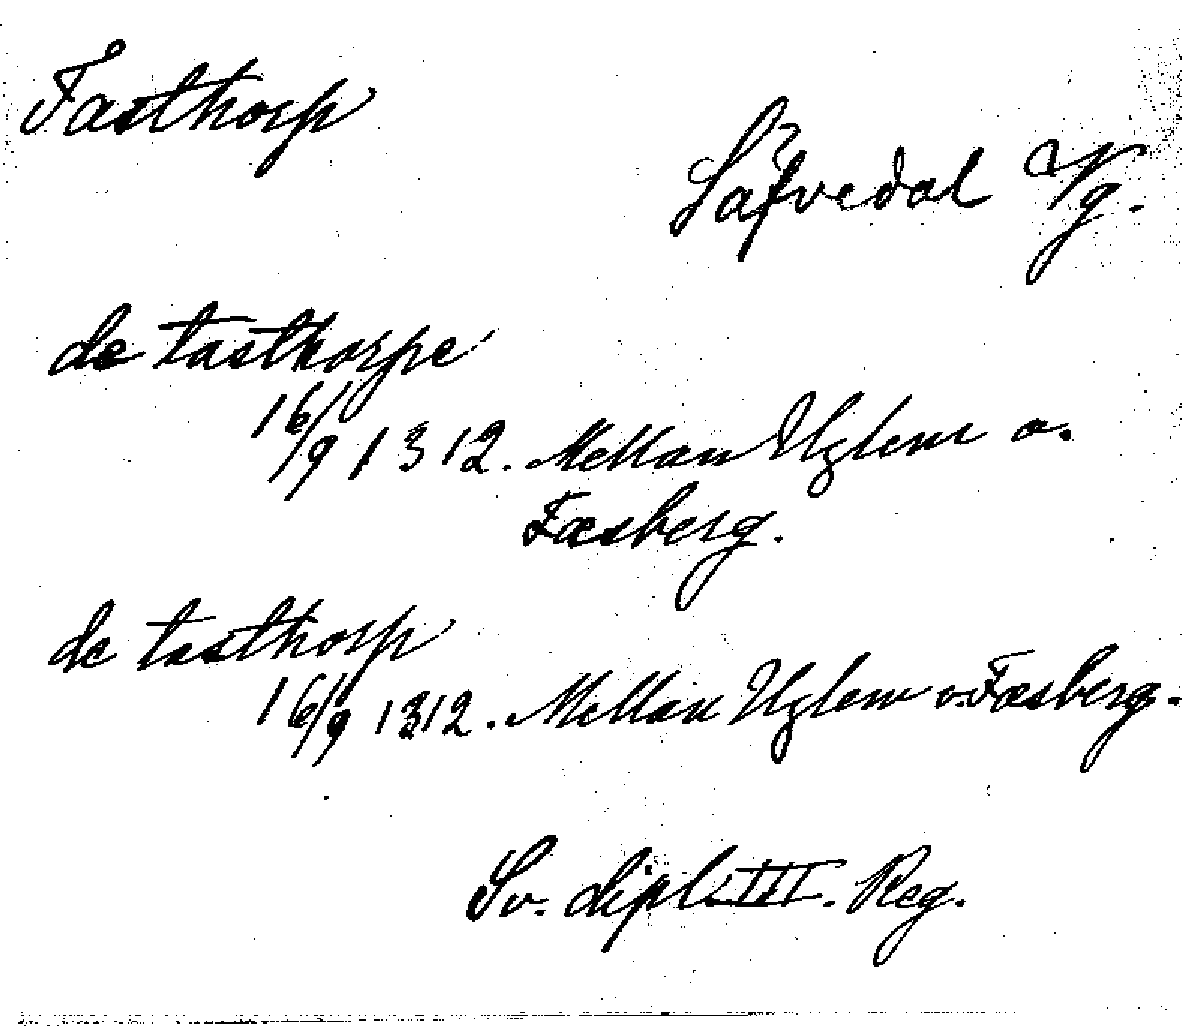 Tasthorp
Säfvedal Vg.
de tasthorpe
16/9 1312. Mellan Uglem o.
Fæsberg.
de tasthorp
16/9 1312. Mellan Uglem o. Fæsberg.
Sv. dipl. III. Reg.